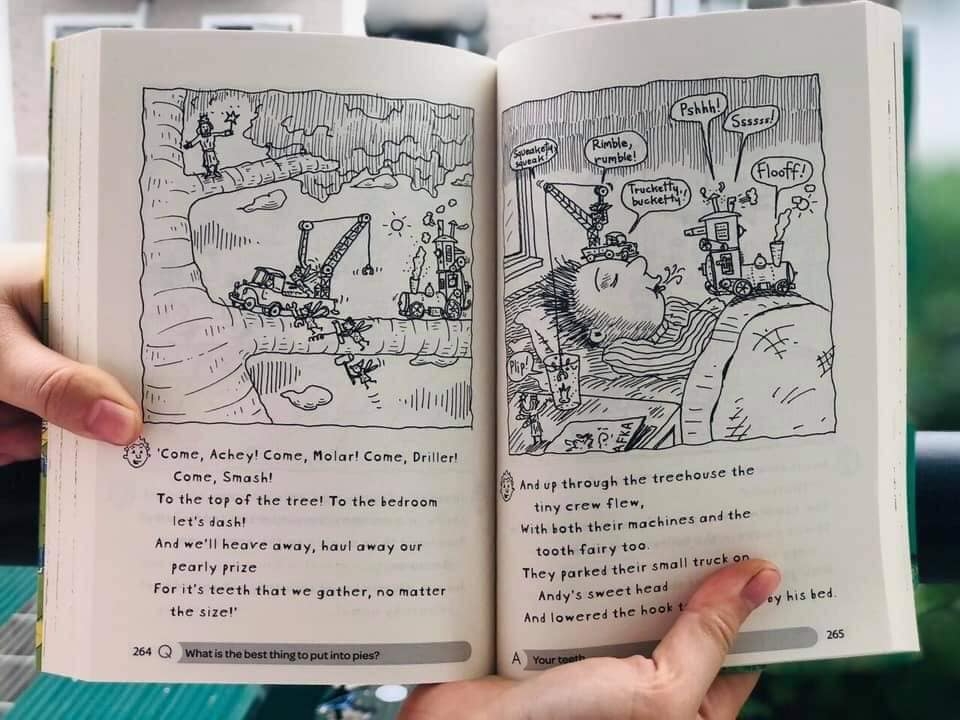 'Come, Achey! Come, Molar! Come, Driller!
Come, Smash!
To the top of the tree! To the bedroom
let's dash!
And we'll heave away, haul away our
pearly prize
For it's teeth that we gather, no matter
the size!'
264 Q What is the best thing to put into pies?
Squeakety squeak!
Rimble,
rumble!
Pshhh!
Ssssss!
Trucketty,
bucketty!
Flooff!
Plip!
FKA
And up through the treehouse the
tiny crew flew,
With both their machines and the
tooth fairy too.
They parked their small truck on
Andy's sweet head
And lowered the hook by his bed.
A Your teeth
265